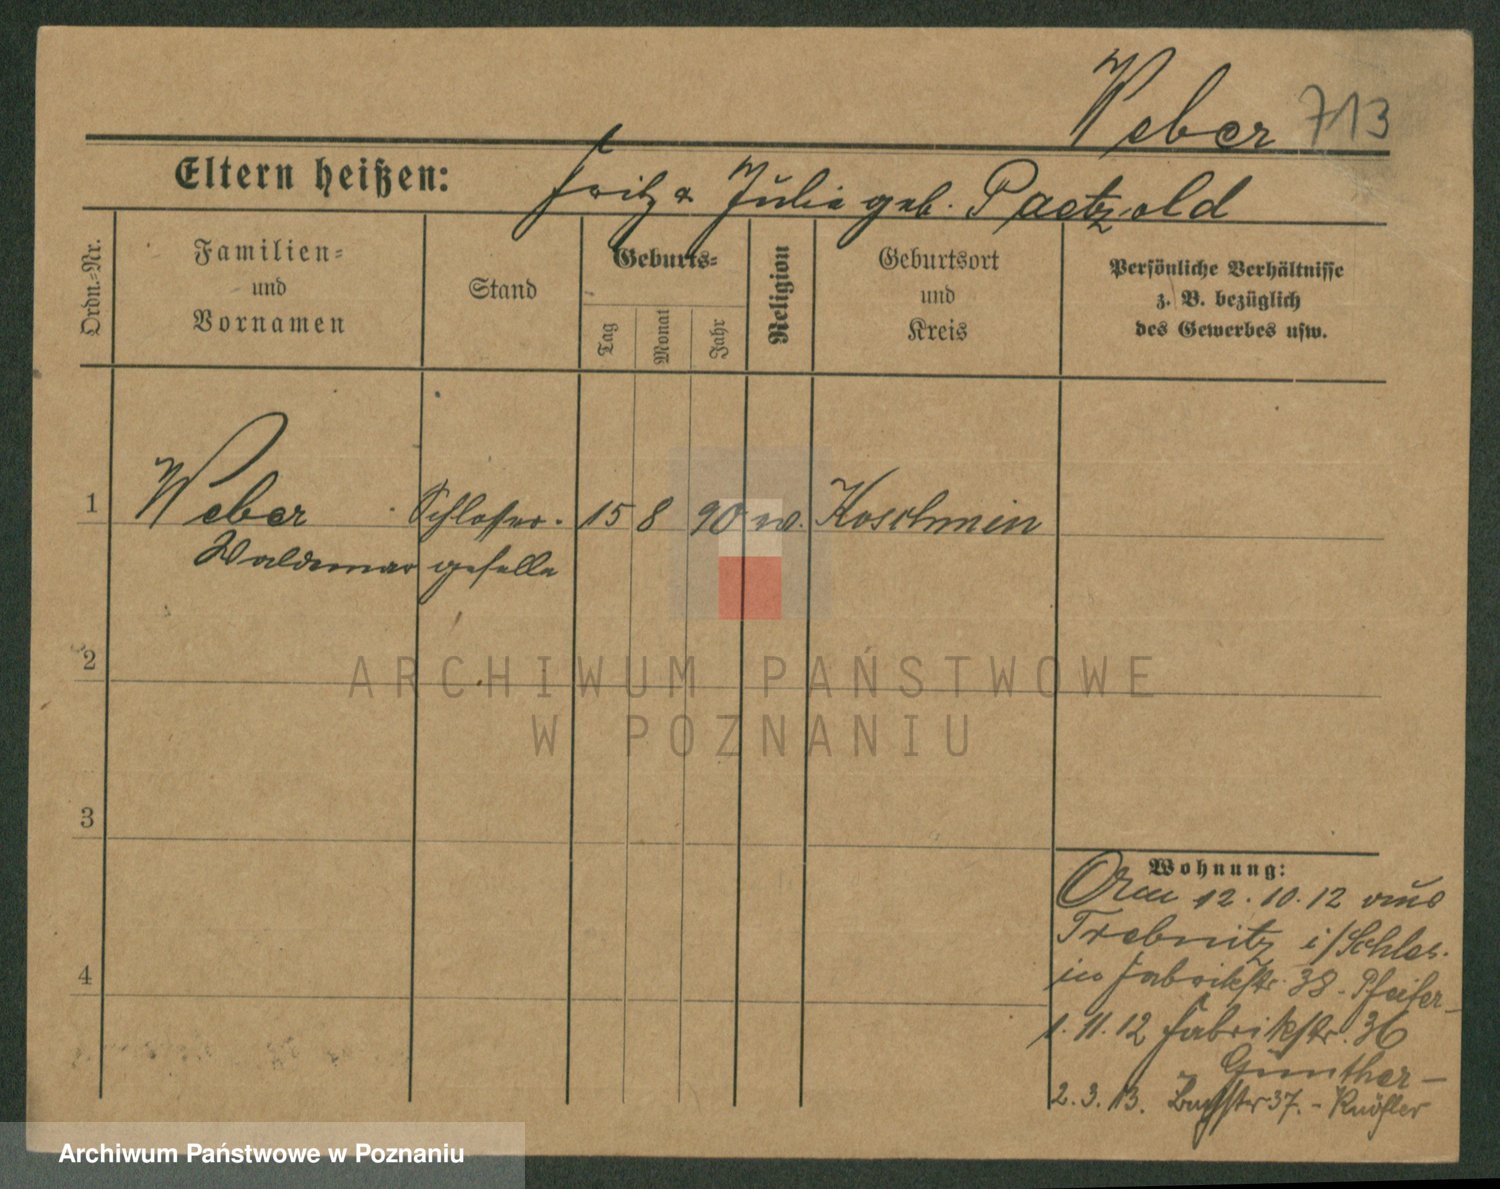 Weber 713
Eltern heißen: Fritz & Julie geb. Paetzold
Ordn.-Nr.
Familien-
und
Vornamen
Stand
Geburts-
Tag
Monat
Jahr
Religion
Geburtsort
und
Kreis
Persönliche Verhältnisse
z. B. bezüglich
des Gewerbes usw.
1 Weber Schlosser- 15 8 90 Koschmin
Waldemar geselle
2
3
4
Wohnung:
12.10.12 aus
Trebnitz i/Schles.
in Fabrikstr. 38 - Pfeifer -
1.11.12 Fabrikstr. 36
Günther -
2.3.13. 37. - Knöfler
ARCHIWUM PAŃSTWOWE
W POZNANIU
Archiwum Państwowe w Poznaniu